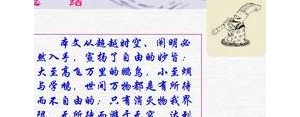 结
本文从超越时空、阐明必
然入手，宣扬了自由的妙旨：
大至高飞万里的鹏鸟，小至蜩
与学鸠，世间万物都是有所待
而不自由的；只有消灭物我界
限，无所待而游于无穷，达到